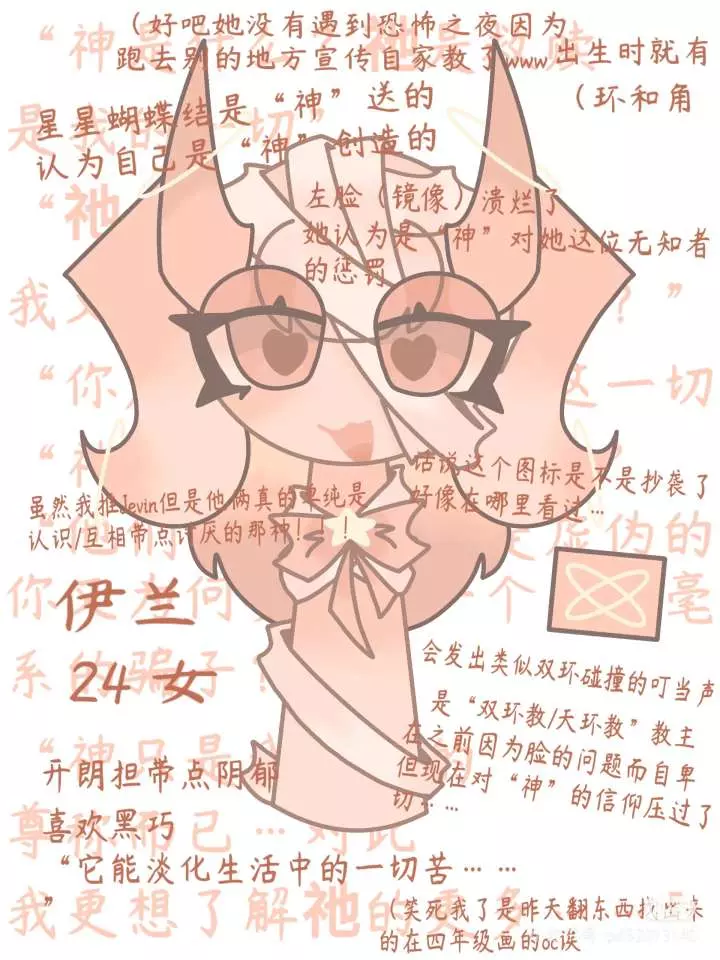 （好吧她没有遇到恐怖之夜因为
跑去别的地方宣传自家教了www
出生时就有
（环和角
星星蝴蝶结是“神”送的
认为自己是“神”创造的
左脸（镜像）溃烂了
她认为是“神”对她这位无知者
的惩罚
“神是什么
祂是救赎
是我的一切”
“祂
？”
“你
这一切
话说这个图标是不是抄袭了
好像在哪里看过…
虽然我推Jevin但是他俩真的单纯是
认识/互相带点讨厌的那种！！！
是虚伪的
系的骗子？
伊兰
24女
会发出类似双环碰撞的叮当声
是“双环教/天环教”教主
在之前因为脸的问题而自卑
但现在对“神”的信仰压过了
切……
“神只是
尊称而已…对此
我更想了解祂的更多
开朗担带点阴郁
喜欢黑巧
“它能淡化生活中的一切苦……
”
（笑死我了是昨天翻东西找出来
的在四年级画的oc诶